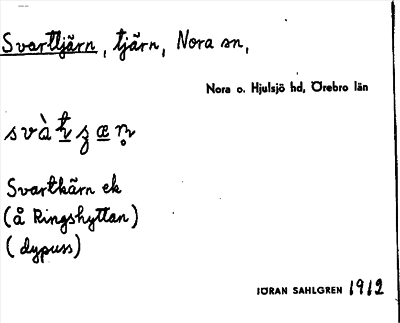 Svarttjärn, tjärn, Nora sn,
Nora o. Hjulsjö hd, Örebro län
Svartkärn ek
(å Ringshyttan)
(dypuss)
JÖRAN SAHLGREN 1912